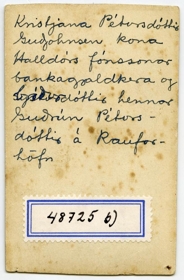 Kristjana Pétursdóttir
Guðjohnsen kona
Halldórs Jónssonar
bankagjaldkera og
dóttir hennar
Guðrún Péturs-
dóttir á Raufar-
höfn
48725 b)